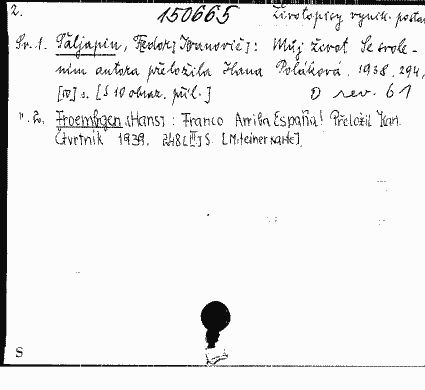 2. 150665 Životopisy vynik. postav
Sv. 1. Šaljapin, F[edor] I[vanovič]: Můj život. Se svole-
ním autora přeložila Hana Poláková. 1938. 294,
[IV] s. [S 10 obraz. příl.] O rev. 61
" 2. Froembgen [Hans]: Franco Arriba España! Přeložil Karl
Čtvrtník 1939. 248 [III] S. [Miteiner Karte]
S